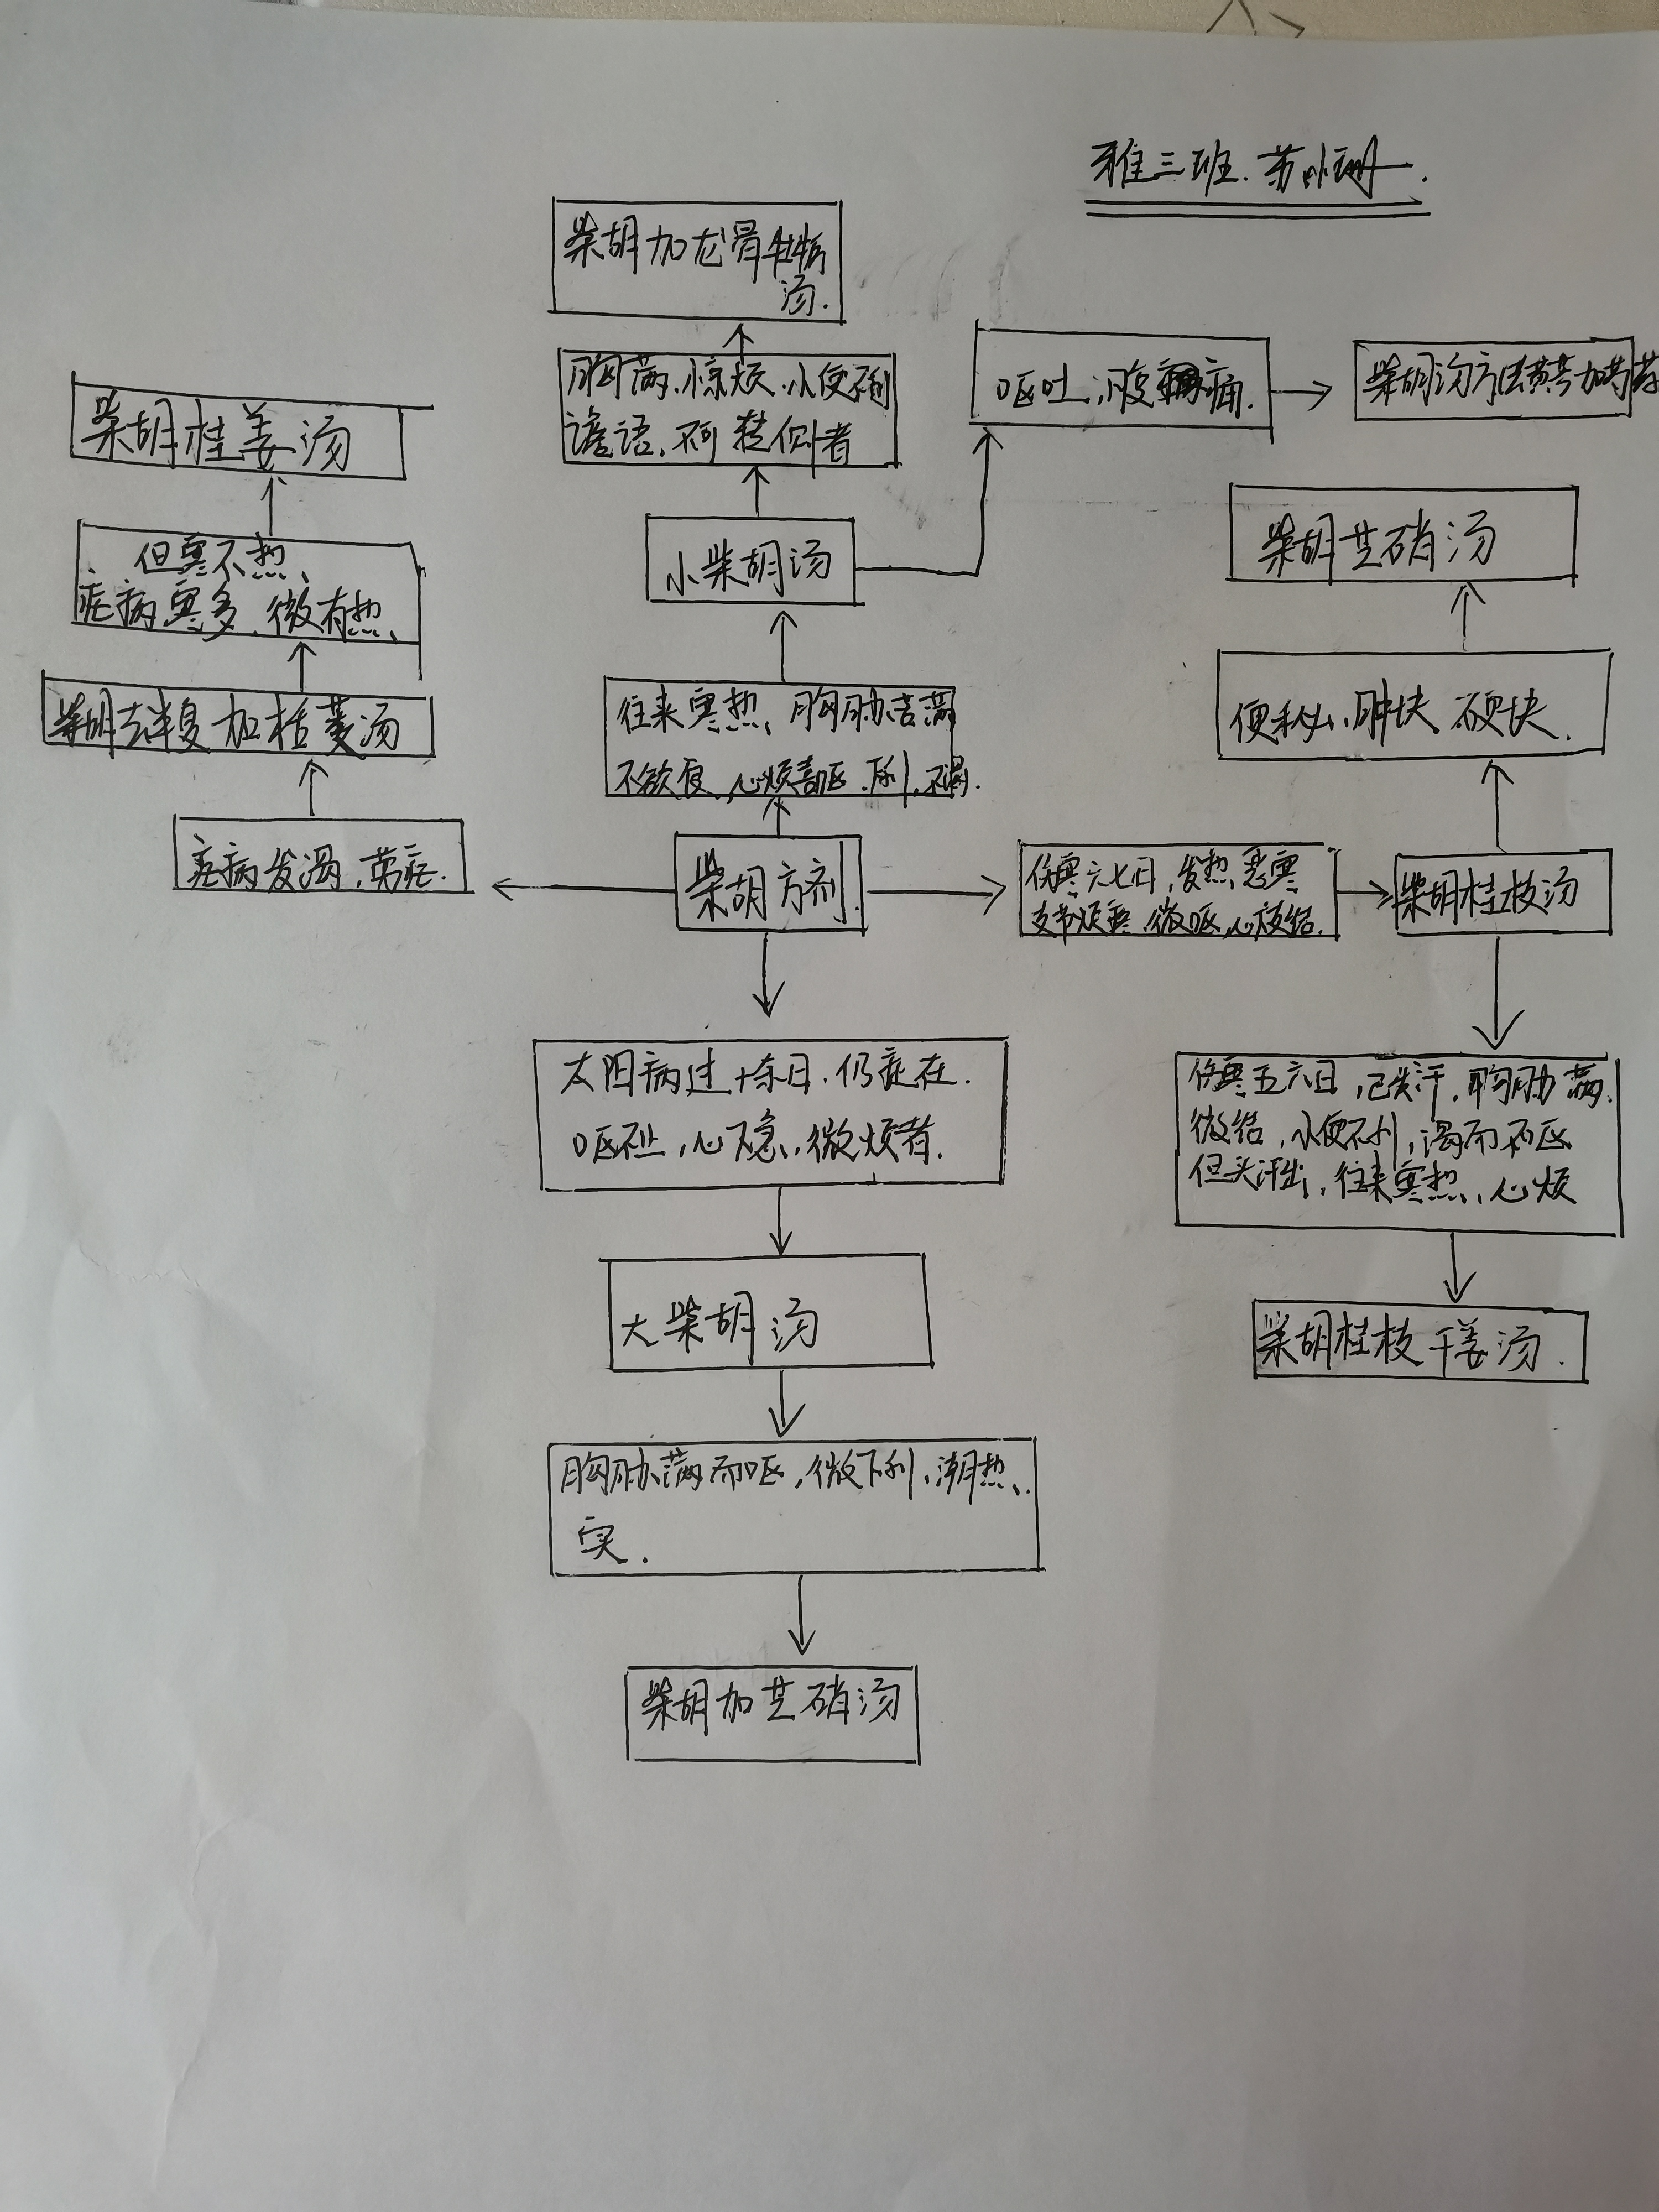 雅三班.
柴胡加龙骨牡蛎
汤.
胸满、惊烦、小便不利
谵语、不可转侧者
呕吐,腹痛.
柴胡汤方去黄芩加芍药
柴胡桂姜汤
但寒不热、
疟病寒多、微有热、
小柴胡汤
柴胡芒硝汤
柴胡去半夏加栝蒌汤
往来寒热、胸胁苦满
不欲食、心烦喜呕、下利、不渴.
便秘、肿块、硬块.
疟病发渴,劳疟.
柴胡方剂.
伤寒六七日,发热、恶寒
支节烦疼、微呕,心支结.
柴胡桂枝汤
太阳病过十余日.仍症在.
呕不止,心下急,微烦者.
伤寒五六日,已发汗,胸胁满.
微结,小便不利,渴而不呕
但头汗出,往来寒热、心烦
大柴胡汤
柴胡桂枝干姜汤.
胸胁满而呕,微下利,潮热、
实.
柴胡加芒硝汤